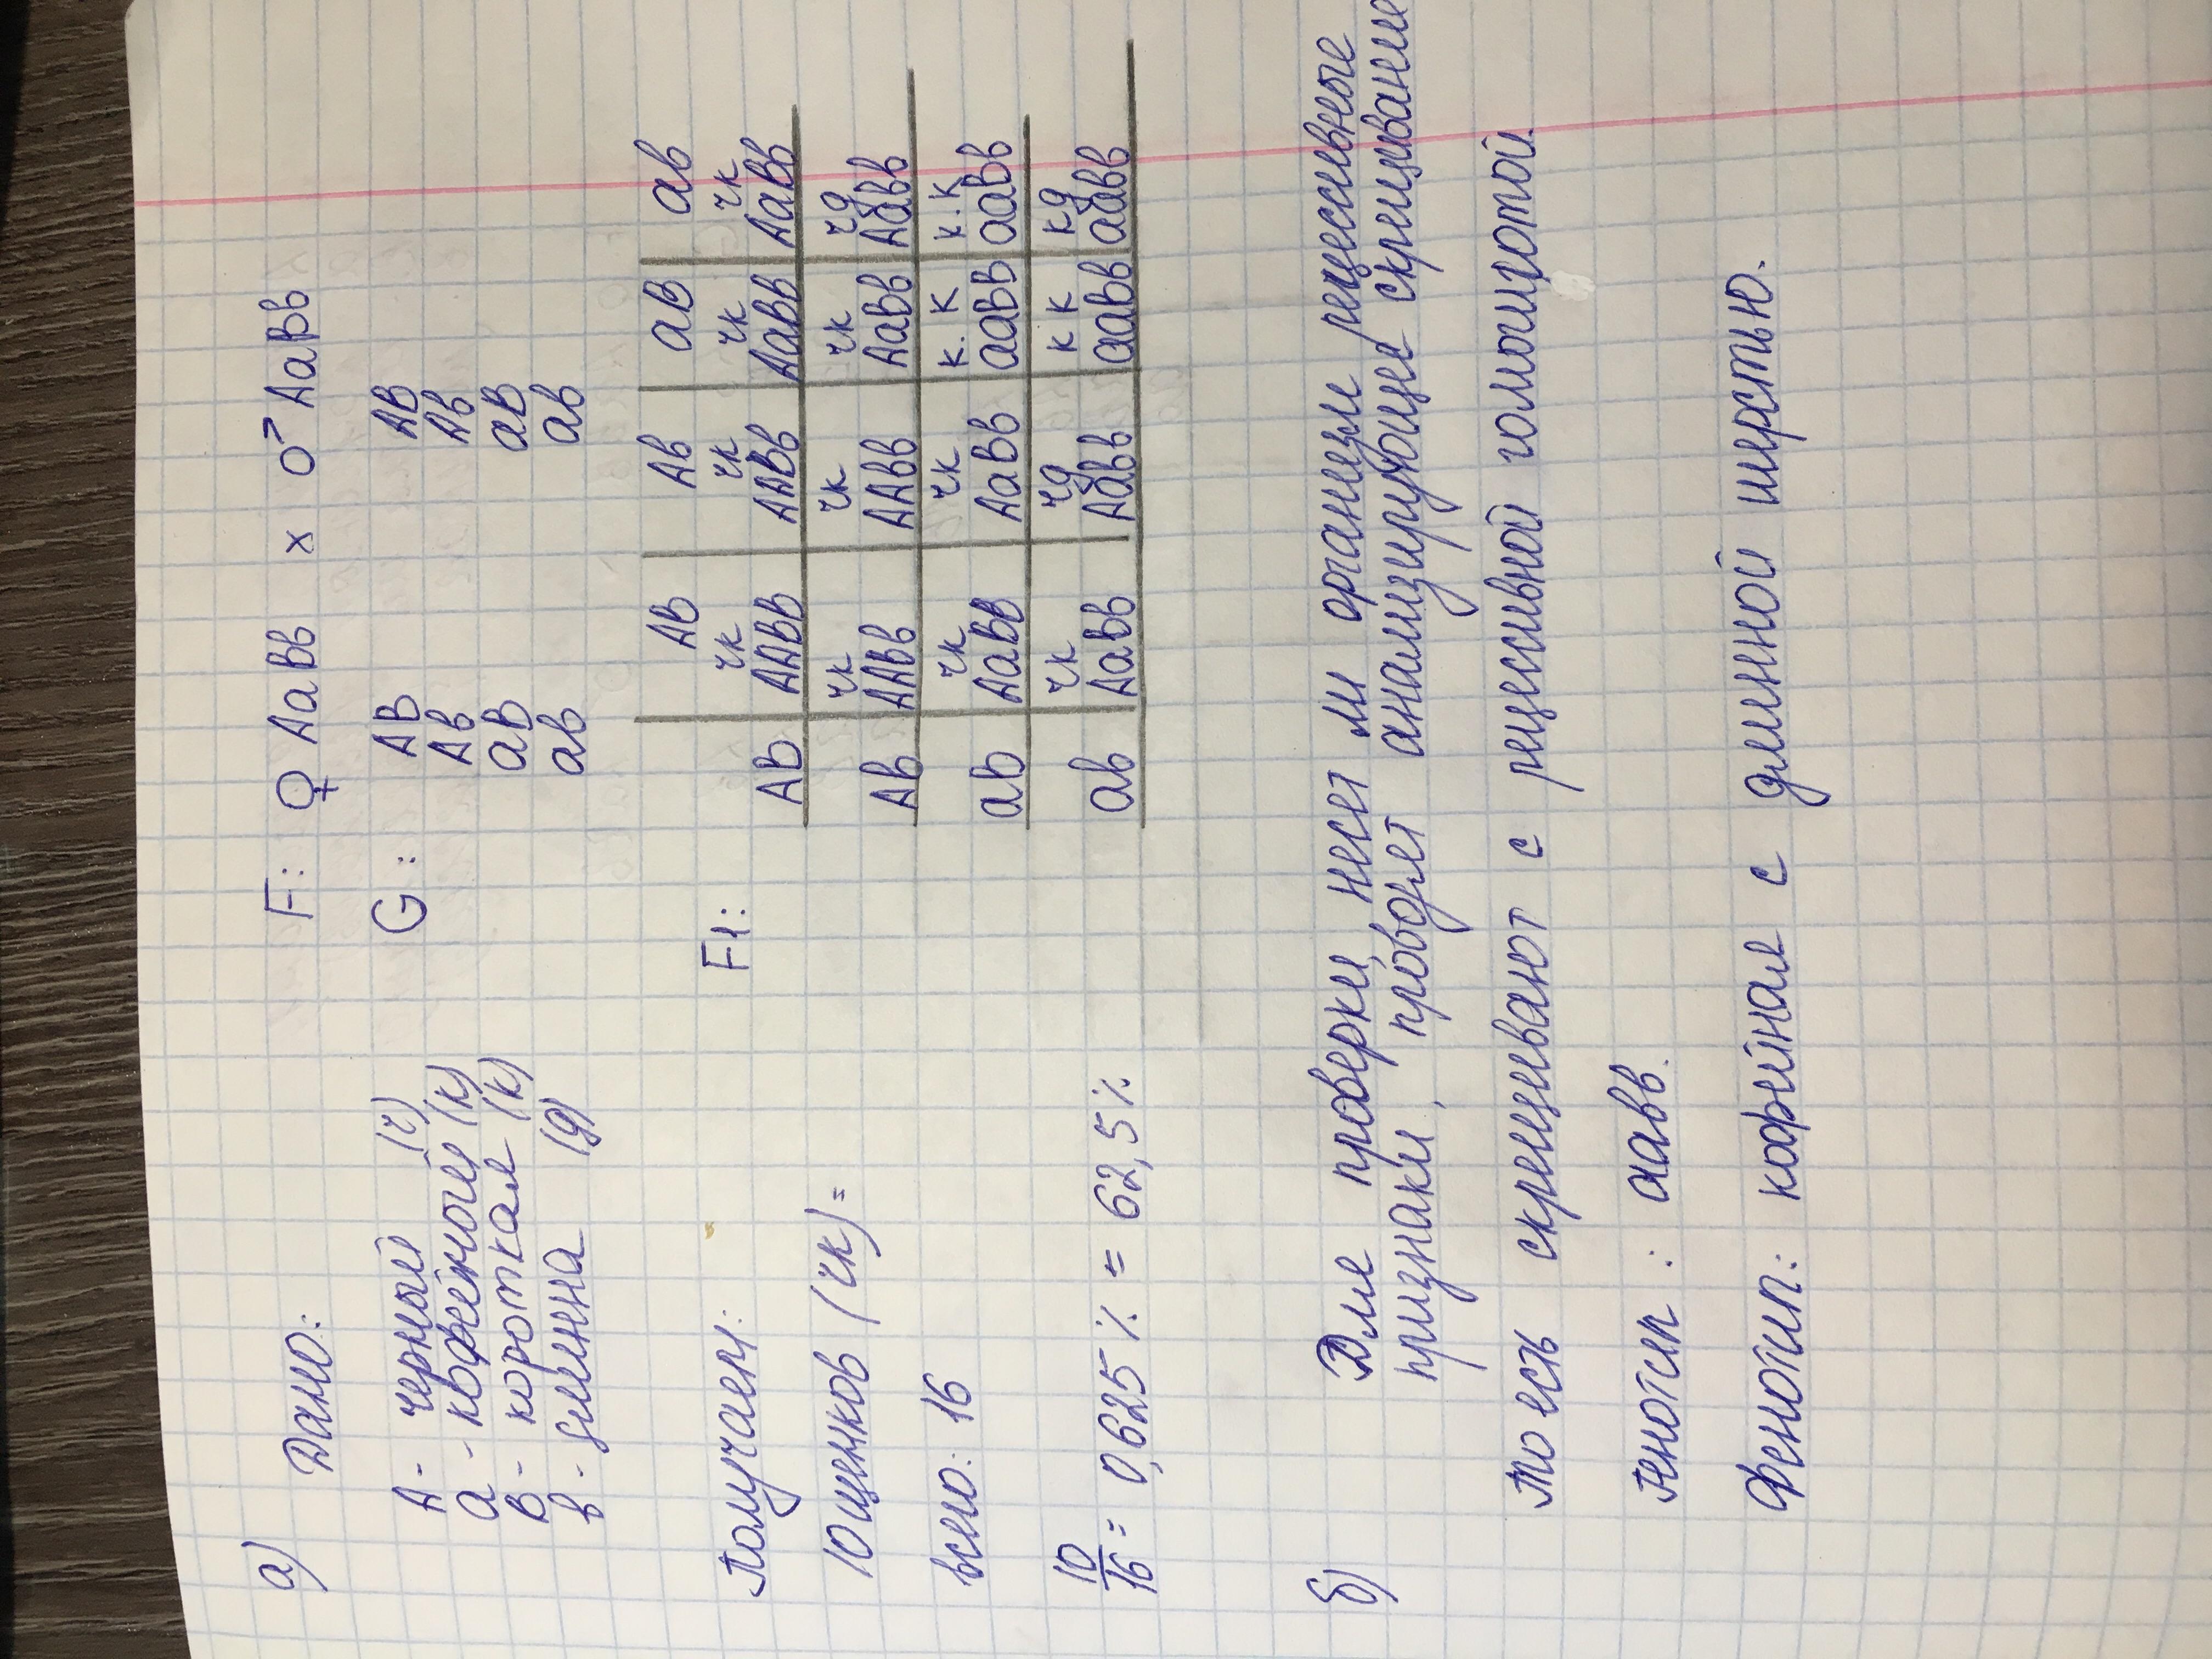 а) Дано:
А - черный (ч)
а - кофейный (к)
В - короткая (к)
в - длинна (д)
F: ♀ АаВв х ♂ АаВв
G: АВ АВ
Ав Ав
аВ аВ
ав ав
F1:
АВ Ав аВ ав
чк чк чк чк
АВ ААВВ ААВв АаВВ АаВв
чк чк чк чд
Ав ААВв ААВв АаВв Аавв
чк чк к.к к.к
ав АаВВ АаВв ааВВ ааВв
чк чд к к кд
ав АаВв Аавв ааВв аавв
Получаем:
10 щенков (чк) =
всего: 16
10/16 = 0,625% = 62,5%
б) Для проверки, несет ли организм рецессивные
признаки, проводят анализирующее скрещивание
то есть скрещивают с рецессивной гомозиготой.
Генотип: аавв.
Фенотип: кофейная с длинной шерстью.